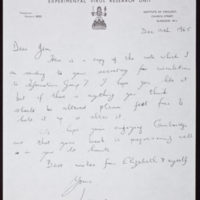 EXPERIMENTAL VIRUS RESEARCH UNIT
INSTITUTE OF VIROLOGY,
CHURCH STREET,
GLASGOW, W.1
Dec 14th 1965
Dear Jim,
Here is a copy of the note which I
am sending to your secretary for circulation
to Information Group 7. I hope you like it
but if there is anything you think
should be altered please feel free to
take it up or alter it.
I hope your enjoying Cambridge
and that your work is progressing well
as you do there.
Best wishes from Elizabeth & myself
Yours